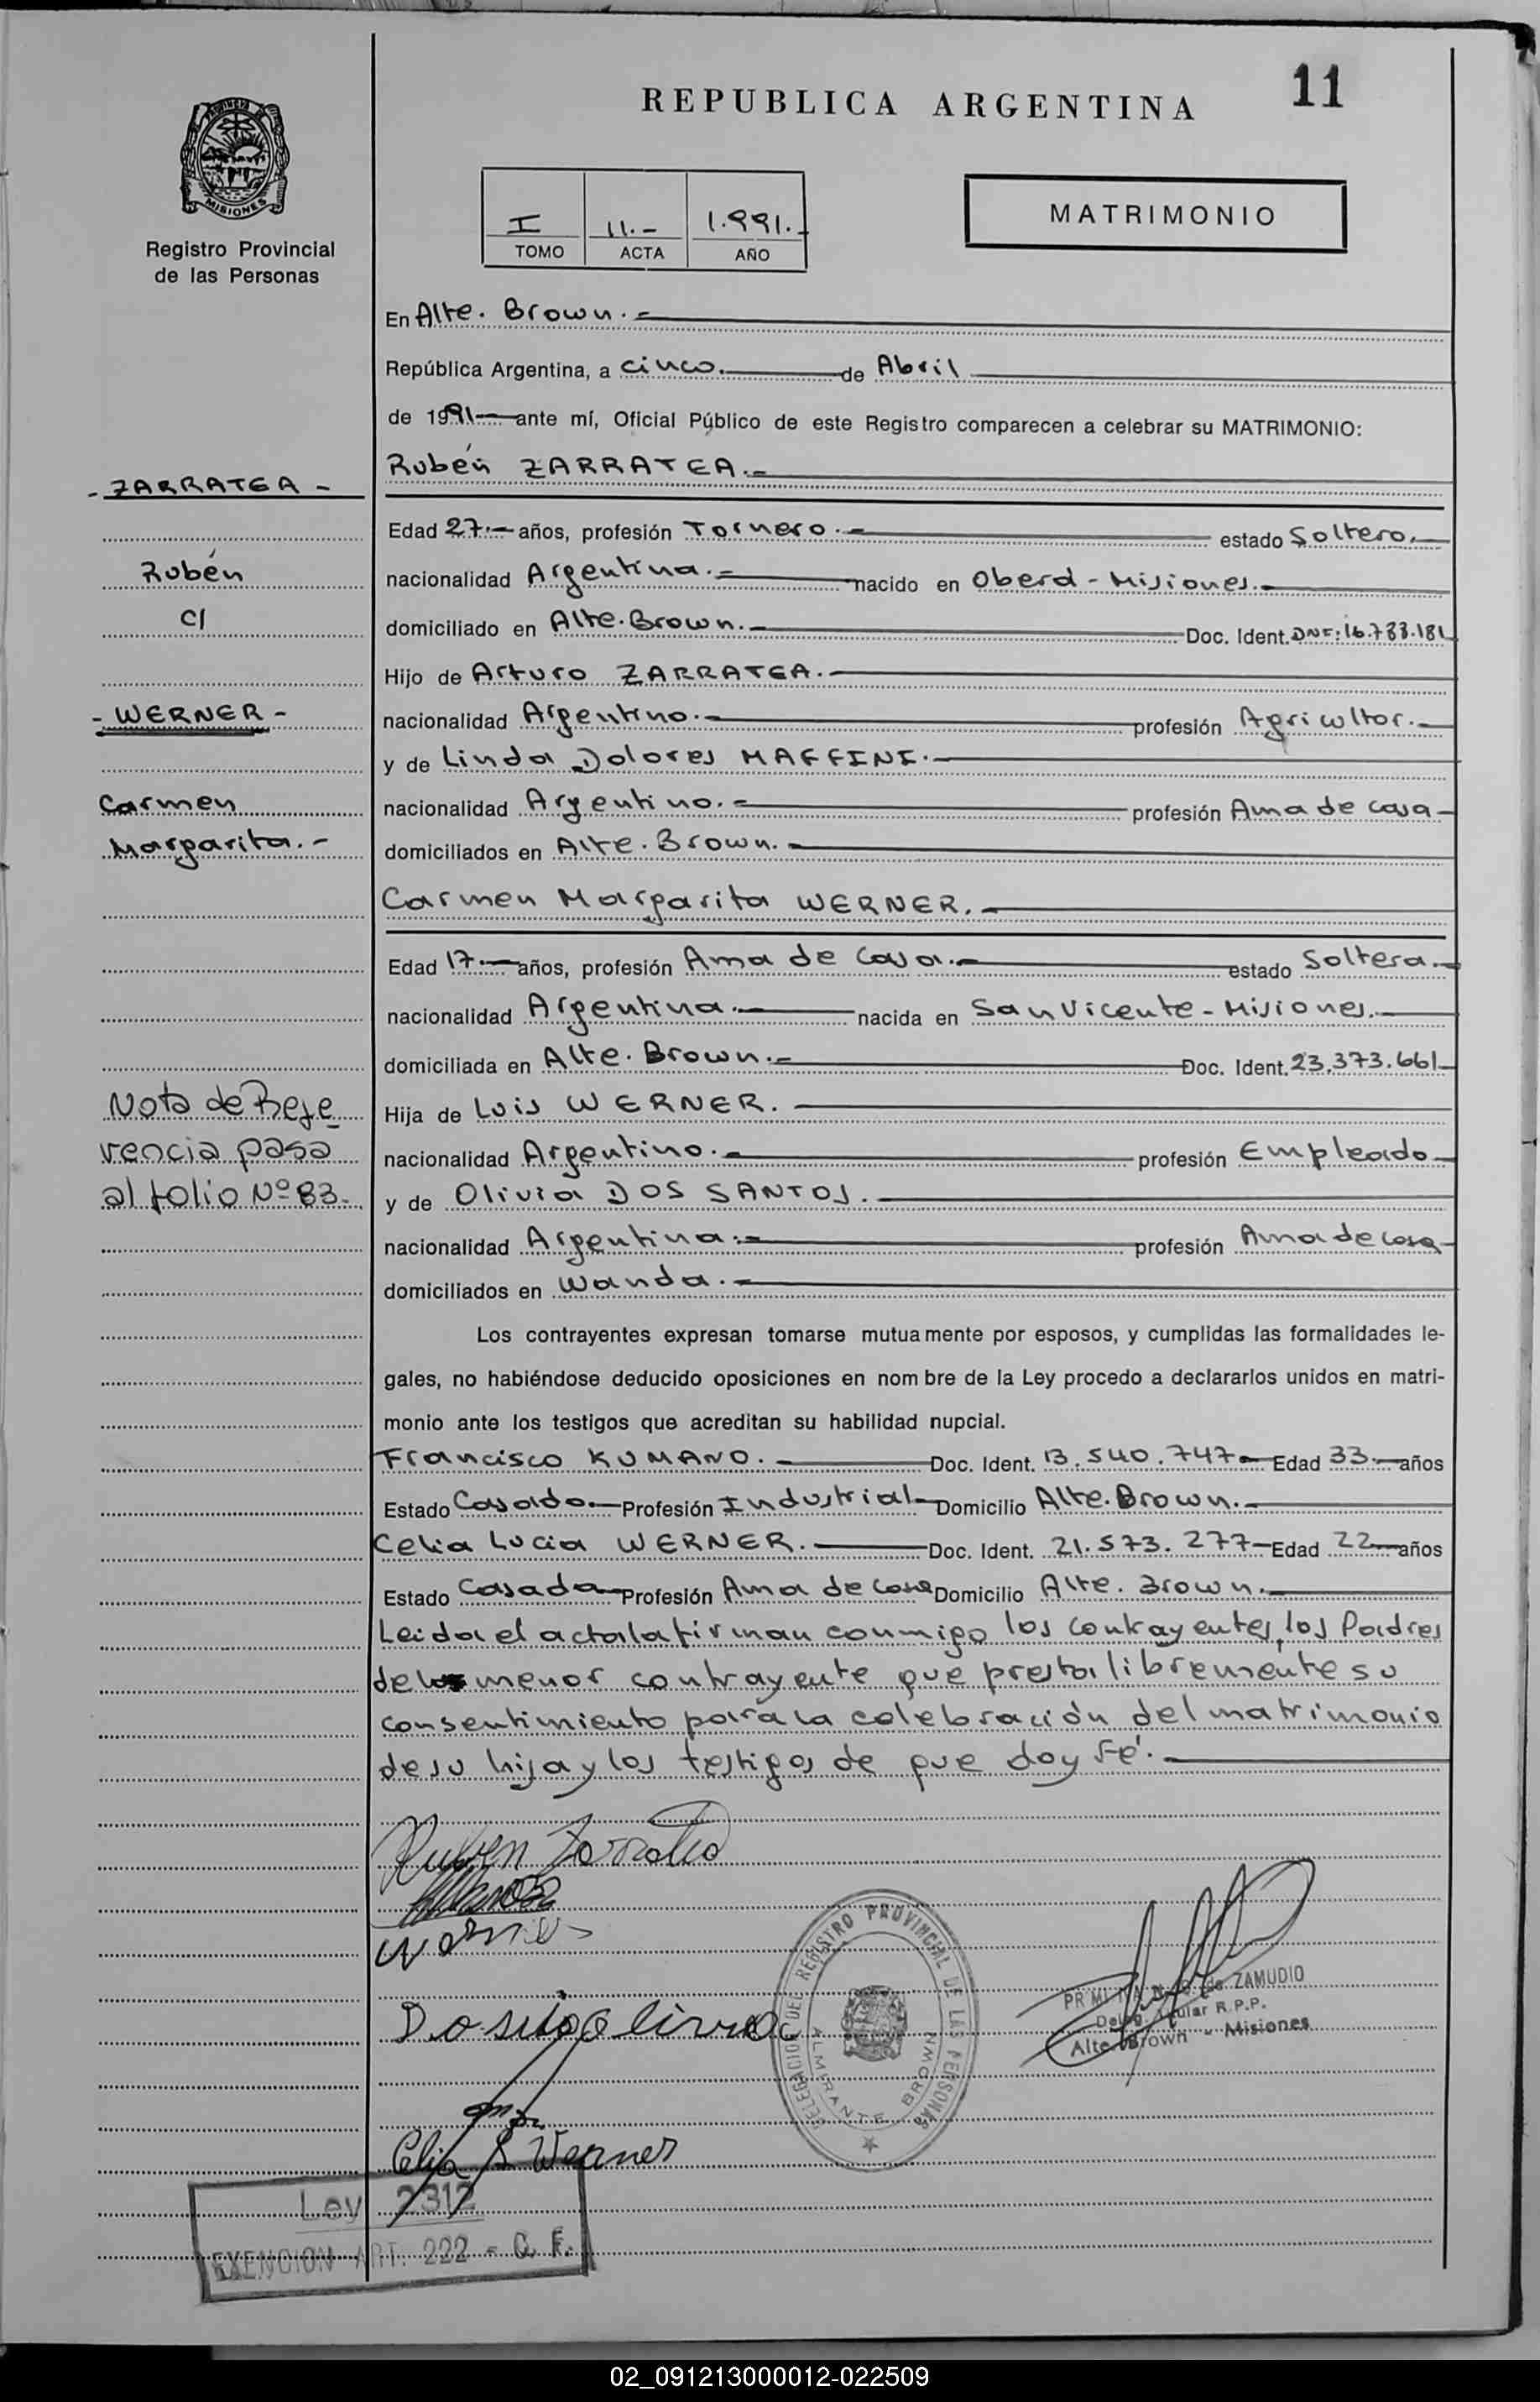 11
REPUBLICA ARGENTINA
MISIONES
Registro Provincial
de las Personas
I 11.- 1.991.-
TOMO ACTA AÑO
MATRIMONIO
En Alte. Brown.-
República Argentina, a cinco. de Abril
de 1991 ante mí, Oficial Público de este Registro comparecen a celebrar su MATRIMONIO:
Rubén ZARRATEA.-
- ZARRATEA -
Edad 27.- años, profesión Tornero.- estado Soltero.
Rubén
nacionalidad Argentina.- nacido en Oberá - Misiones.-
C/
domiciliado en Alte. Brown.- Doc. Ident. DNI: 16.783.181
Hijo de Arturo ZARRATEA.-
- WERNER -
nacionalidad Argentino.- profesión Agricultor.-
y de Linda Dolores MAFFINI.-
Carmen
nacionalidad Argentino.- profesión Ama de casa
Margarita.-
domiciliados en Alte. Brown.-
Carmen Margarita WERNER.-
Edad 17.- años, profesión Ama de Casa.- estado Soltera.
nacionalidad Argentina.- nacida en San Vicente - Misiones.-
domiciliada en Alte. Brown.- Doc. Ident. 23.373.661
Nota de Refe
Hija de Luis WERNER.
rencia pasa
nacionalidad Argentino.- profesión Empleado
al folio Nº 83.
y de Olivia DOS SANTOS.
nacionalidad Argentina.- profesión Ama de casa
domiciliados en Wanda.-
Los contrayentes expresan tomarse mutuamente por esposos, y cumplidas las formalidades le-
gales, no habiéndose deducido oposiciones en nombre de la Ley procedo a declararlos unidos en matri-
monio ante los testigos que acreditan su habilidad nupcial.
Francisco KUMANO.- Doc. Ident. 13.540.747 Edad 33 años
Estado Casado Profesión Industrial Domicilio Alte. Brown.-
Celia Lucia WERNER. Doc. Ident. 21.573.277 Edad 22 años
Estado Casada Profesión Ama de casa Domicilio Alte. Brown.
Leida el acta la firman conmigo los contrayentes, los Padres
de la menor contrayente que presta libremente su
consentimiento para la celebración del matrimonio
de su hija y los testigos de que doy fé.-
Ruben Zarratea
Werner
DELEGACION DEL REGISTRO PROVINCIAL DE LAS PERSONAS
ALMIRANTE BROWN
de ZAMUDIO
Deleg. Titular R.P.P.
Alte. Brown - Misiones
Celia L Werner
Ley 2312
EXENCION ART. 222 - C. F.
02_091213000012-022509